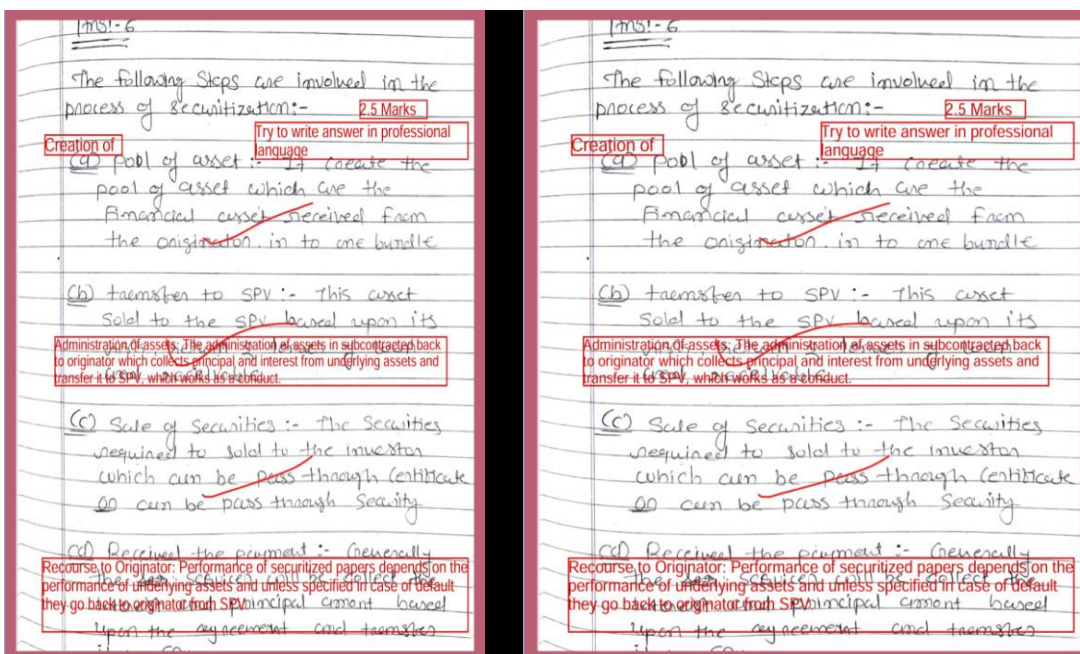 Ans:-6
The following Steps are involved in the
process of Securitization:-
2.5 Marks
Try to write answer in professional
language
Creation of
(a) pool of asset :- It create the
pool of asset which are the
Financial asset received from
the originator. in to one bundle
(b) transfer to SPV :- This asset
sold to the SPV based upon its
Administration of assets: The administration of assets in subcontracted back
to originator which collects principal and interest from underlying assets and
transfer it to SPV, which works as a conduct.
(c) Sale of Securities :- The Securities
required to sold to the investor
which can be Pass through Certificate
or can be pass through Security
(d) Received the payment :- Generally
Recourse to Originator: Performance of securitized papers depends on the
performance of underlying assets and unless specified in case of default
they go back to originator from SPV.
principal amont based
upon the agreement and transfer
Ans:-6
The following Steps are involved in the
process of Securitization:-
2.5 Marks
Try to write answer in professional
language
Creation of
(a) pool of asset :- It create the
pool of asset which are the
Financial asset received from
the originator. in to one bundle
(b) transfer to SPV :- This asset
sold to the SPV based upon its
Administration of assets: The administration of assets in subcontracted back
to originator which collects principal and interest from underlying assets and
transfer it to SPV, which works as a conduct.
(c) Sale of Securities :- The Securities
required to sold to the investor
which can be Pass through Certificate
or can be pass through Security
(d) Received the payment :- Generally
Recourse to Originator: Performance of securitized papers depends on the
performance of underlying assets and unless specified in case of default
they go back to originator from SPV.
principal amont based
upon the agreement and transfer